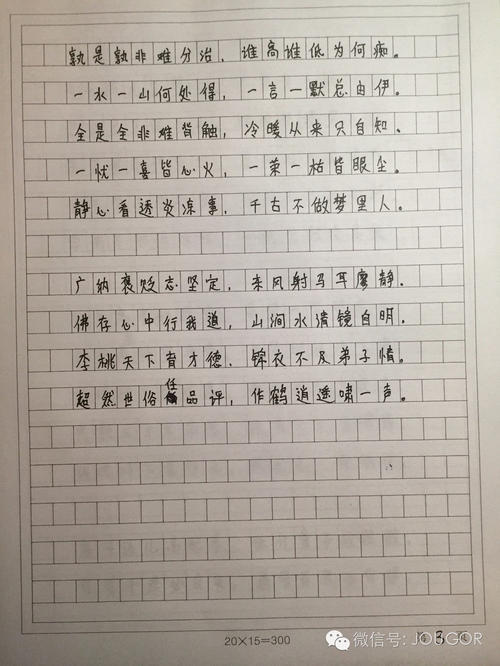 孰是孰非难分治，谁高谁低为何痴。
一水一山何处得，一言一默总由伊。
全是全非难背触，冷暖从来只自知。
一忧一喜皆心火，一荣一枯皆眼尘。
静心看透炎凉事，千古不做梦里人。
广纳褒贬志坚定，来风射马耳廖静。
佛存心中行我道，山涧水清镜自明。
李桃天下育才德，锦衣不及弟子情。
超然世俗任品评，作鹤逍遥啸一声。
20×15=300
3
微信号: JOBGOR